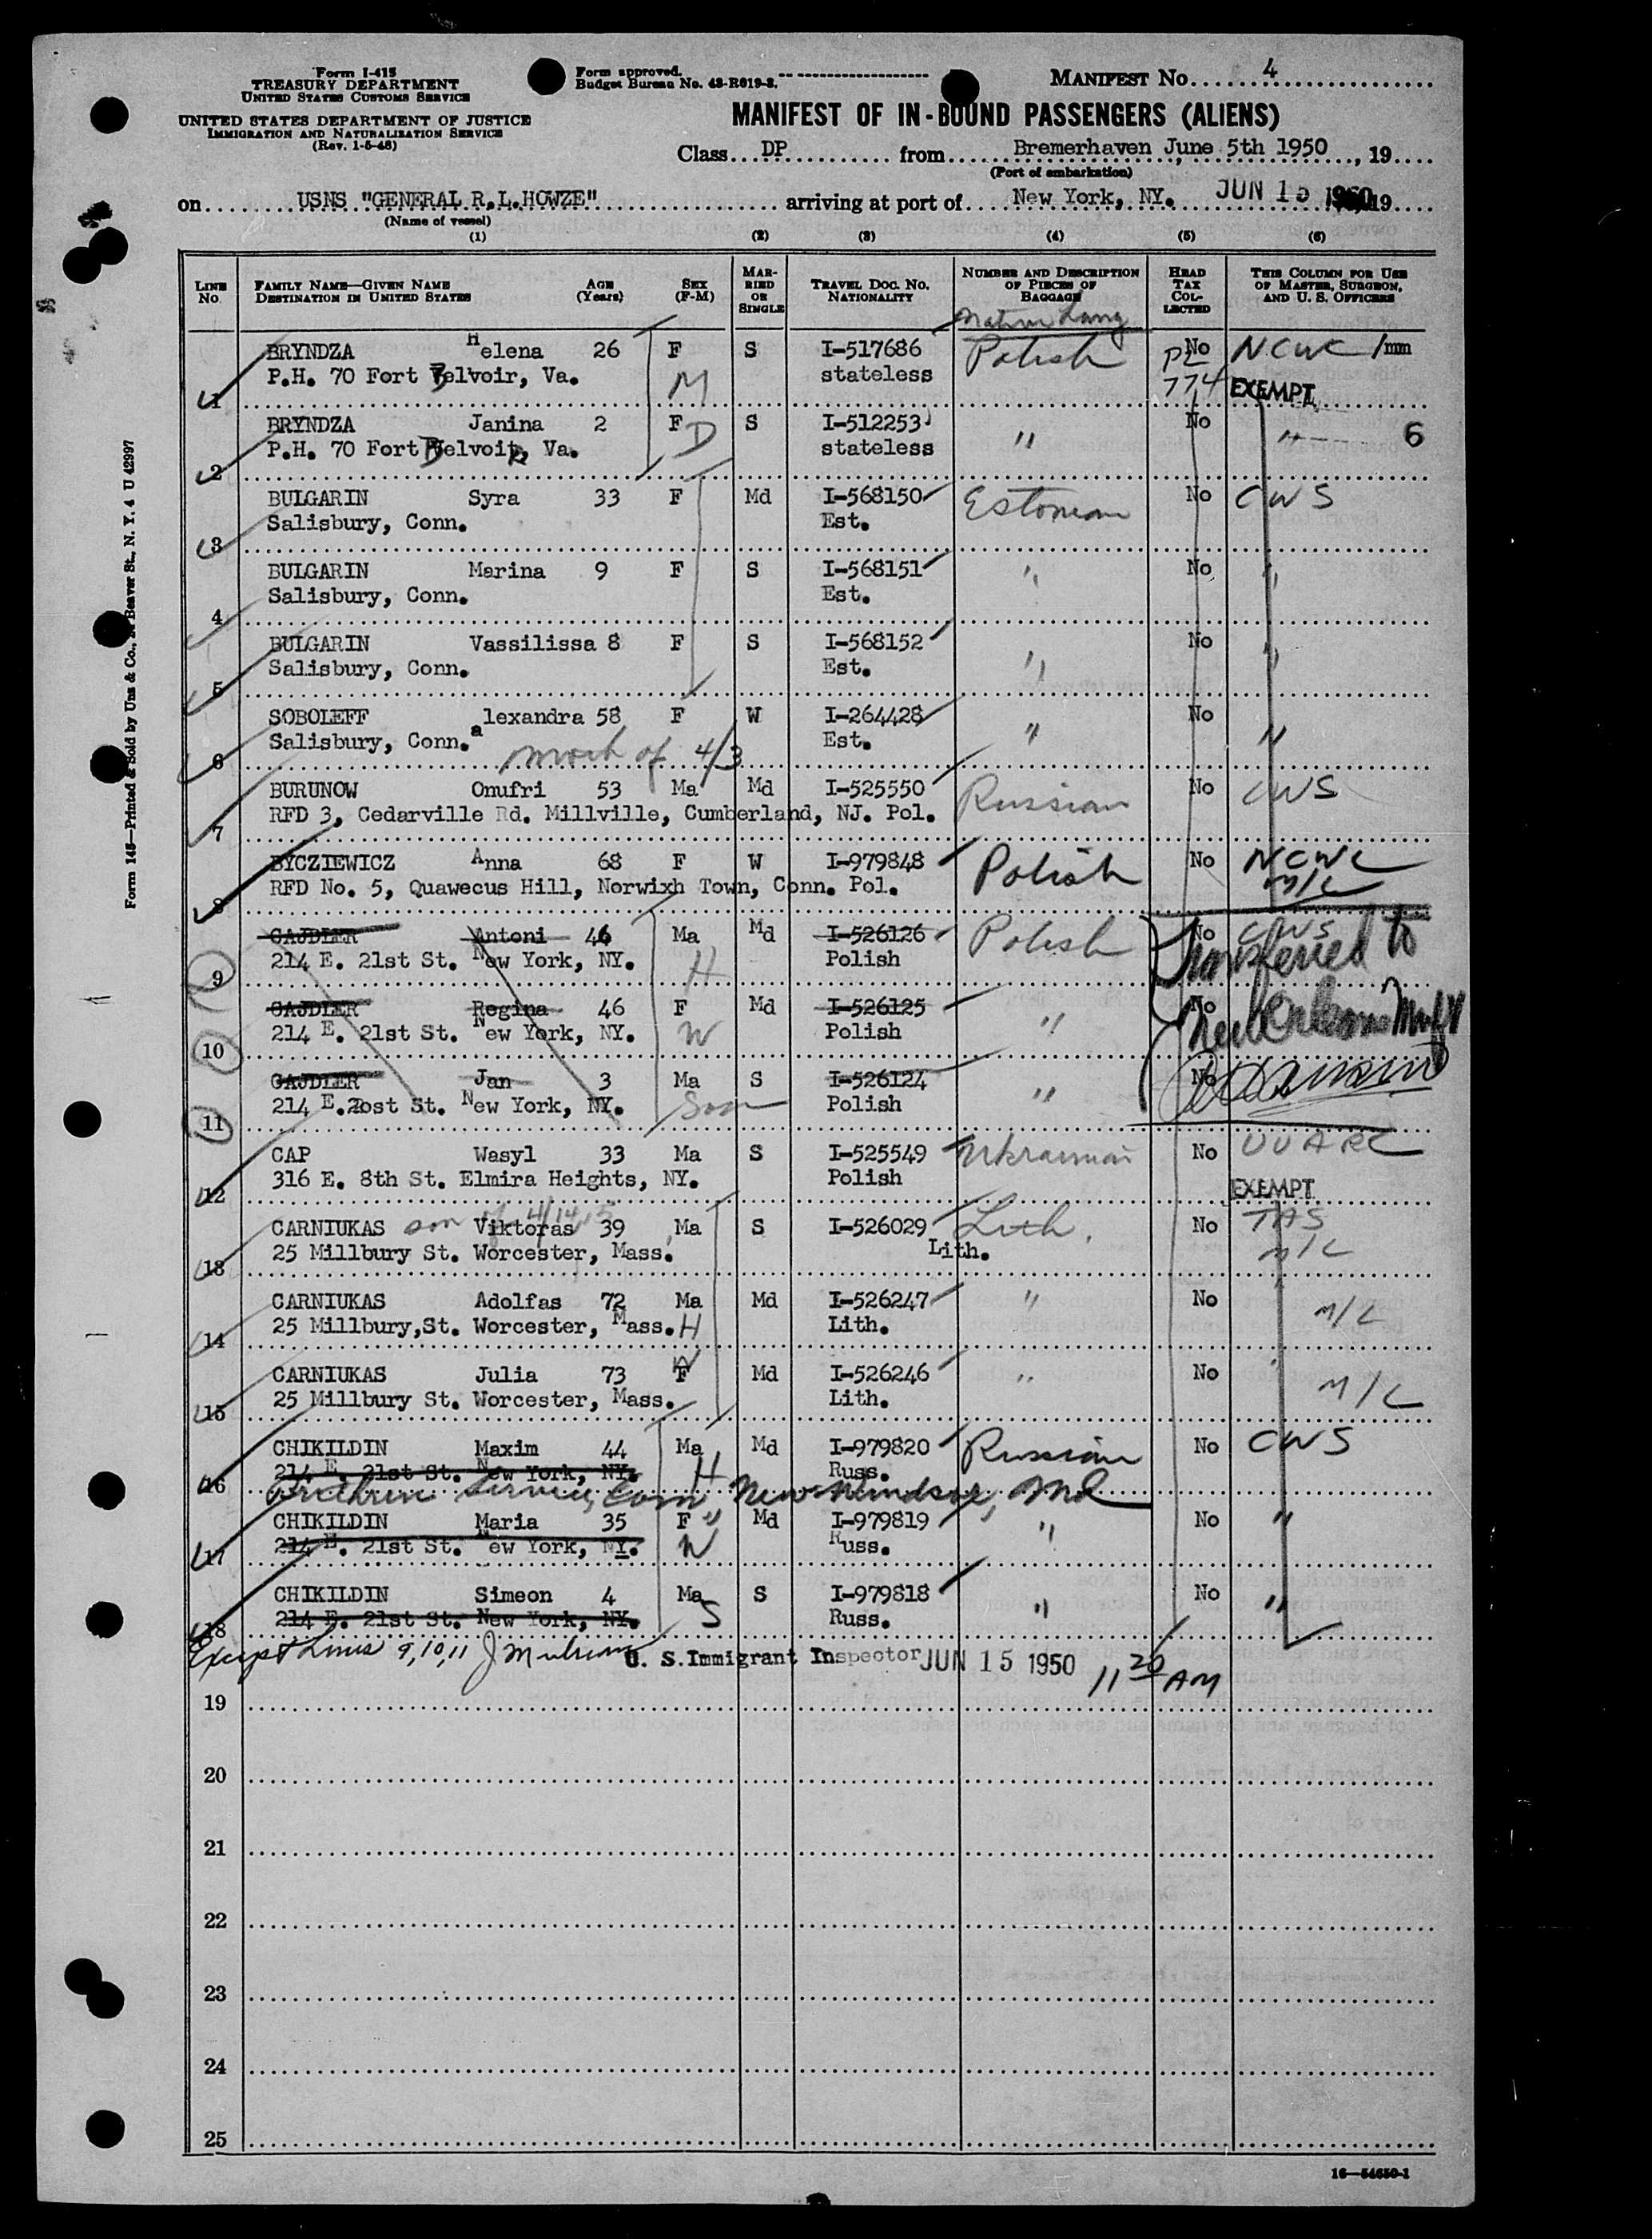 Form I-415
TREASURY DEPARTMENT
UNITED STATES CUSTOMS SERVICE
UNITED STATES DEPARTMENT OF JUSTICE
IMMIGRATION AND NATURALIZATION SERVICE
(Rev. 1-5-48)
Form approved.
Budget Bureau No. 43-R619-2.
MANIFEST No. 4
MANIFEST OF IN-BOUND PASSENGERS (ALIENS)
Class DP from Bremerhaven, June 5th 1950, 19
(Port of embarkation)
on USNS "GENERAL R.L.HOWZE" arriving at port of New York, NY. JUN 15 1950, 19
(Name of vessel)
(1) (2) (3) (4) (5) (6)
LINE No.
FAMILY NAME—GIVEN NAME DESTINATION IN UNITED STATES
AGE (Years)
SEX (F-M)
MARRIED OR SINGLE
TRAVEL DOC. NO. NATIONALITY
NUMBER AND DESCRIPTION OF PIECES OF BAGGAGE
HEAD TAX COLLECTED
THIS COLUMN FOR USE OF MASTER, SURGEON, AND U. S. OFFICERS
Native Lang
BRYNDZA Helena 26 F S I-517686 Polish No NCWC /mm
1 P.H. 70 Fort Belvoir, Va. M stateless PL 774 EXEMPT
BRYNDZA Janina 2 F D S I-512253 " No " 6
2 P.H. 70 Fort Belvoir, Va. stateless
BULGARIN Syra 33 F Md I-568150 Estonian No CWS
3 Salisbury, Conn. Est.
BULGARIN Marina 9 F S I-568151 " No "
4 Salisbury, Conn. Est.
BULGARIN Vassilissa 8 F S I-568152 " No "
5 Salisbury, Conn. Est.
SOBOLEFF alexandra 58 F W I-264428 " No "
6 Salisbury, Conn. moth of 4/3 Est.
BURUNOW Onufri 53 Ma Md I-525550 Russian No CWS
7 RFD 3, Cedarville Rd. Millville, Cumberland, NJ. Pol.
BYCZIEWICZ Anna 68 F W I-979848 Polish No NCWC
8 RFD No. 5, Quawecus Hill, Norwixh Town, Conn. Pol. M/C
GAJDLER Antoni 46 Ma Md I-526126 Polish No CWS
9 214 E. 21st St. New York, NY. H Polish Transferred to
GAJDLER Regina 46 F Md I-526125 " No
10 214 E. 21st St. New York, NY. W Polish New Orleans Manf
GAJDLER Jan 3 Ma S I-526124 " No
11 214 E.20st St. New York, NY. Son Polish
CAP Wasyl 33 Ma S I-525549 Ukrainian No UUARC
12 316 E. 8th St. Elmira Heights, NY. Polish EXEMPT
CARNIUKAS son of 4/14,15 Viktoras 39 Ma S I-526029 Lith. No TAS
13 25 Millbury St. Worcester, Mass. Lith. M/C
CARNIUKAS Adolfas 72 Ma Md I-526247 " No "
14 25 Millbury,St. Worcester, Mass. H Lith. M/C
CARNIUKAS Julia 73 F W Md I-526246 " No "
15 25 Millbury St. Worcester, Mass. Lith. M/C
CHIKILDIN Maxim 44 Ma Md I-979820 Russian No CWS
16 214 E. 21st St. New York, NY. H Russ.
Brethren Service Com New Windsor, Md
CHIKILDIN Maria 35 F Md I-979819 " No "
17 214 E. 21st St. New York, NY. W Russ.
CHIKILDIN Simeon 4 Ma S I-979818 " No "
18 214 E. 21st St. New York, NY. S Russ.
Except Lines 9,10,11 U. S. Immigrant Inspector JUN 15 1950 11 20 AM
19
20
21
22
23
24
25
16—54650-1
Form 145—Printed & Sold by Unz & Co., Beaver St., N. Y. 4 U 42997